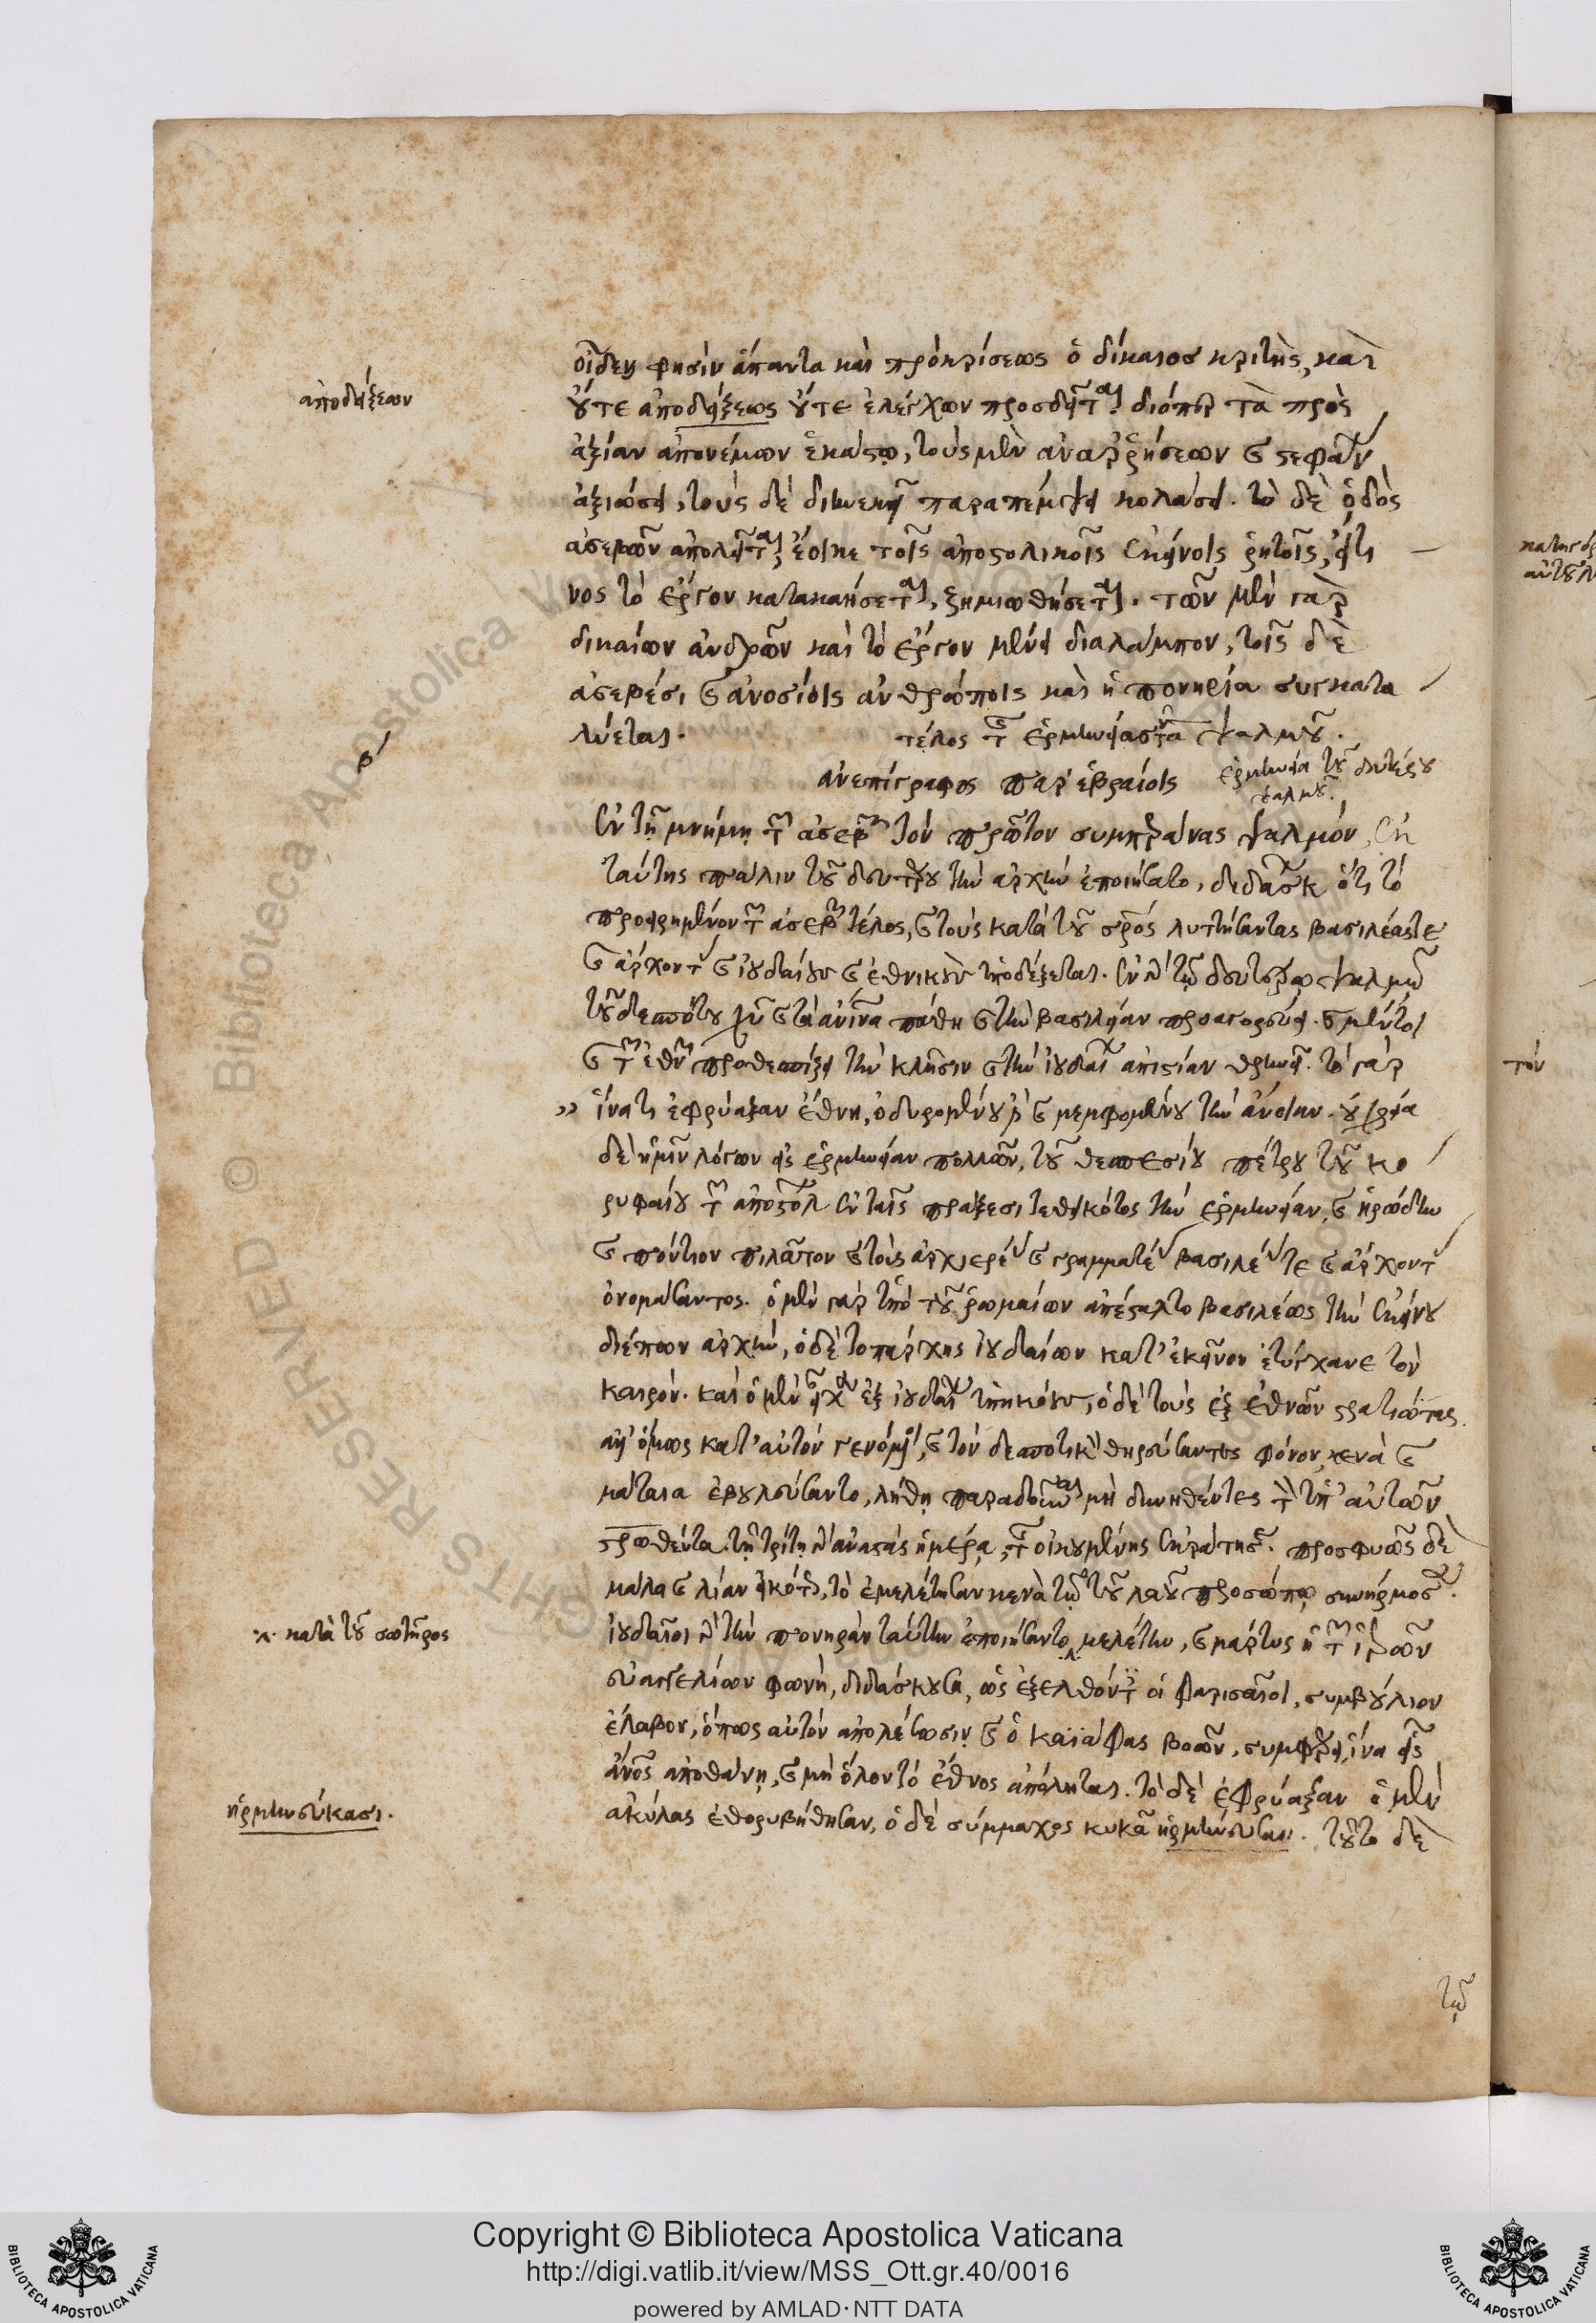 οἶδεν φησὶν ἅπαντα καὶ πρὸ κρίσεως ὁ δίκαιος κριτὴς, καὶ
ἀποδείξεων
οὔτε ἀποδείξεως οὔτε ἐλέγχων προσδεῖται. διόπερ τὰ πρὸς
ἀξίαν ἀπονέμων ἑκάστω, τοὺς μὲν ἀναρρήσεων καὶ στεφάνων
ἀξιώσει, τοὺς δὲ διηνεκεῖ παραπέμψει κολάσει. τὸ δὲ ὁδὸς
ἀσεβῶν ἀπολεῖται, ἔοικε τοῖς ἀποστολικοῖς ἐκείνοις ῥητοῖς, εἴ τι
νος τὸ ἔργον κατακαήσεται, ζημιωθήσεται. τῶν μὲν γὰρ
δικαίων ἀνδρῶν καὶ τὸ ἔργον μένει διαλάμπον, τοῖς δὲ
ἀσεβέσι καὶ ἀνοσίοις ἀνθρώποις καὶ ἡ πονηρία συγκατα
λύεται. τέλος τῆς ἑρμηνείας τοῦ α ψαλμοῦ.
β
ἀνεπίγραφος παρ' ἑβραίοις ἑρμηνεία τοῦ δευτέρου
ψαλμοῦ.
Ἐν τῇ μνήμη τῶν ἀσεβῶν τὸν πρῶτον συμπεράνας ψαλμὸν, ἐκ
ταύτης πάλιν τοῦ δευτέρου τὴν ἀρχὴν ἐποιήσατο, διδάσκων ὅτι τὸ
προειρημένον τῶν ἀσεβῶν τέλος, καὶ τοὺς κατὰ τοῦ σρος λυττήσαντας βασιλέας τε
καὶ ἄρχοντας καὶ ἰουδαίους καὶ ἐθνικοὺς ὑποδέξεται. ἐν δὲ τῷ δευτέρῳ ψαλμῷ
τοῦ δεσπότου χυ καὶ τὰ ἀνινα πάθη καὶ τὴν βασιλείαν προαγορεύει. καὶ μέντοι
καὶ τῶν ἐθνῶν προθεσπίζει τὴν κλῆσιν καὶ τὴν ἰουδαίων ἀπιστίαν θρηνεῖ. τὸ γὰρ
» ἵνα τι ἐφρύαξαν ἔθνη, ὀδυρομένου ἐστὶ καὶ μεμφομένου τὴν ἄνοιαν. οὐ χρεία
δὲ ἡμῖν λόγων εἰς ἑρμηνείαν πολλῶν, τοῦ θεσπεσίου πέτρου τοῦ κο
ρυφαίου τῶν ἀποστόλων ἐν ταῖς πράξεσι τεθεικότος τὴν ἑρμηνείαν, καὶ ἡρώδην
καὶ πόντιον πιλᾶτον καὶ τοὺς ἀρχιερέας καὶ γραμματέας βασιλέας τε καὶ ἄρχοντας
ὀνομάσαντος. ὁ μὲν γὰρ ὑπὸ τοῦ ῥωμαίων ἀπέσταλτο βασιλέως τὴν ἐκείνου
διέπων ἀρχὴν, ὁ δὲ τοπάρχης ἰουδαίων κατ' ἐκεῖνον ἐτύγχανε τὸν
καιρὸν. καὶ ὁ μὲν εἶχε τοὺς ἐξ ἰουδαίων ὑπηκόους, ὁ δὲ τοὺς ἐξ ἐθνῶν στρατιώτας.
ἀλλ' ὅμως κατ' αὐτὸν γενόμενοι, καὶ τὸν δεσποτικὸν θηρεύσαντες φόνον, κενὰ καὶ
μάταια ἐβουλεύσαντο, λήθῃ παραδοῦναι μὴ δυνηθέντες τὸν ὑπ' αὐτῶν
σρωθέντα. τῇ τρίτῃ δὲ ἀναστὰς ἡμέρᾳ, τῆς οἰκουμένης ἐκράτησε. προσφυῶς δὲ
μάλα καὶ λίαν εἰκότως, τὸ ἐμελέτησαν κενὰ τῷ τοῦ λαοῦ προσώπῳ συνήρμοσεν.
·λ· κατὰ τοῦ σωτῆρος
ἰουδαῖοι δὲ τὴν πονηρὰν ταύτην ἐποιήσαντο μελέτην, καὶ μάρτυς ἡ τῶν ἱερῶν
εὐαγγελίων φωνὴ, διδάσκουσα, ὡς ἐξελθόντες οἱ φαρισαῖοι, συμβούλιον
ἔλαβον, ὅπως αὐτὸν ἀπολέσωσιν. καὶ ὁ καϊάφας βοῶν, συμφέρει, ἵνα εἷς
ἄνος ἀποθάνῃ, καὶ μὴ ὅλον τὸ ἔθνος ἀπόληται. τὸ δὲ ἐφρύαξαν ὁ μὲν
ἡρμηνεύκασι.
ἀκύλας ἐθορυβήθησαν, ὁ δὲ σύμμαχος κυκᾶ ἡρμήνευσαν. τοῦτο δὲ
τῷ
κατηγορ
τὸν
Copyright © Biblioteca Apostolica Vaticana
http://digi.vatlib.it/view/MSS_Ott.gr.40/0016
powered by AMLAD·NTT DATA
BIBLIOTECA APOSTOLICA VATICANA
BIBLIOTECA APOSTOLICA VATICANA